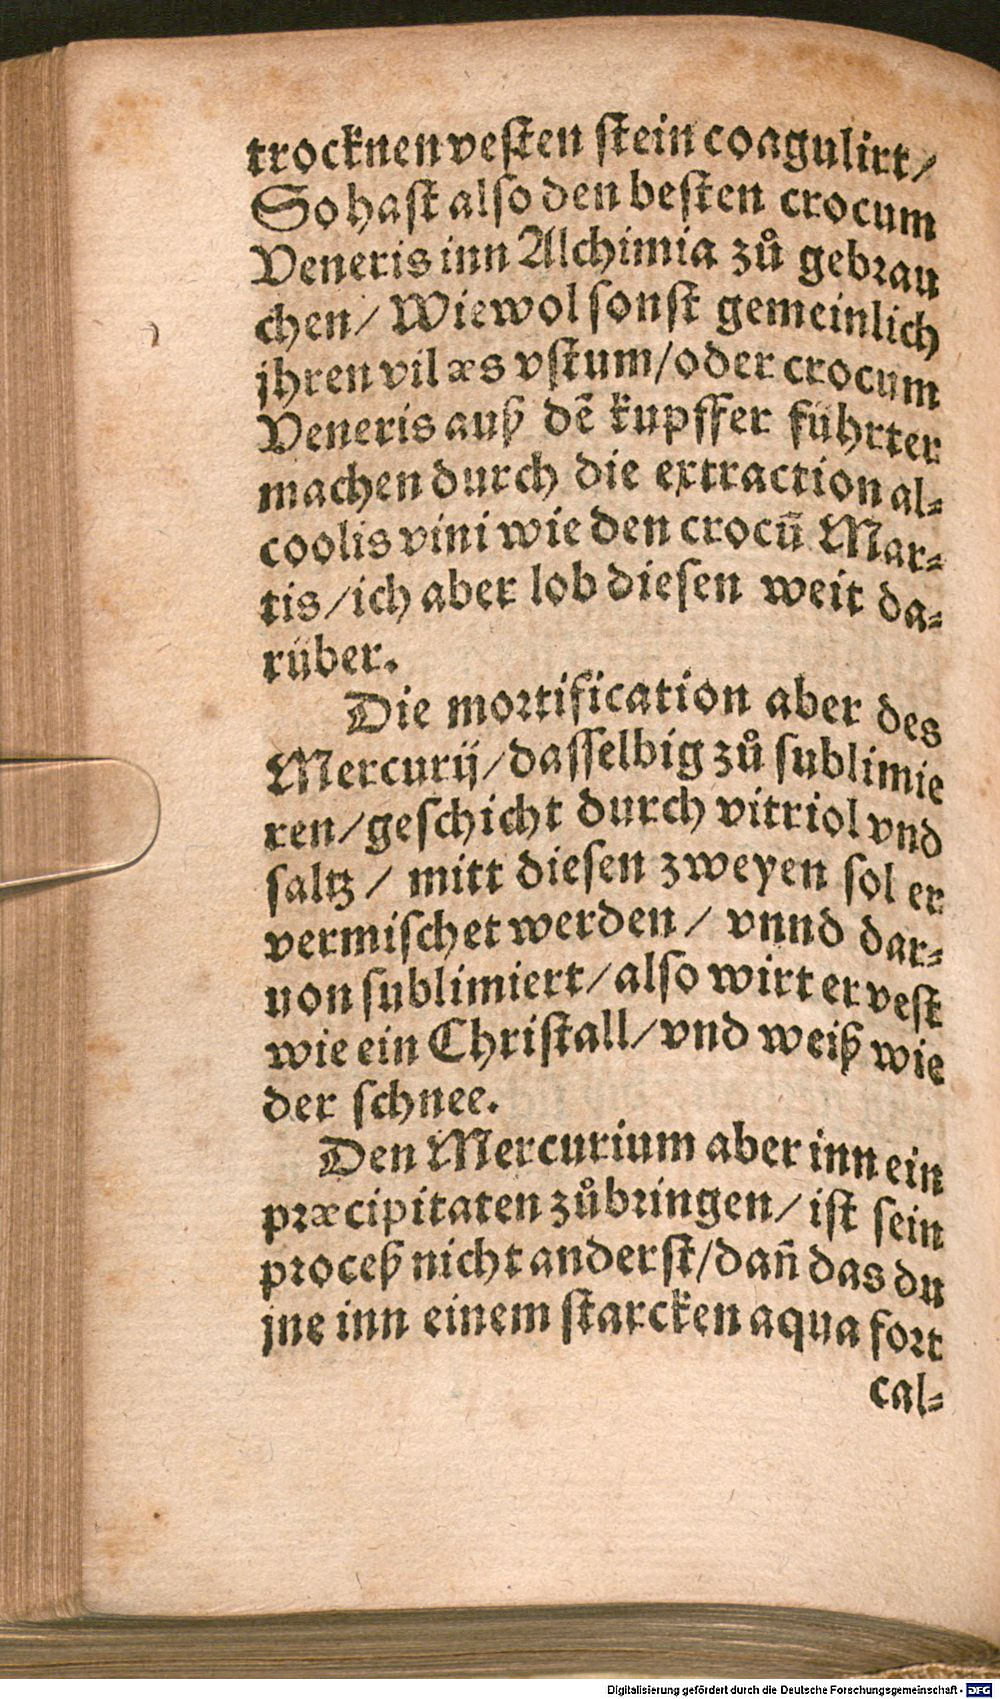 trocknen veſten ſtein coagulirt/
So haſt alſo den beſten crocum
Veneris inn Alchimia zů gebꝛau
chen/ Wiewol ſonſt gemeinlich
jhren vil æs vſtum/oder crocum
Veneris auß dẽ kupffer führter
machen durch die extraction al⸗
coolis vini wie den crocũ Mar⸗
tis/ich aber lob dieſen weit da⸗
rüber.
Die moꝛtification aber des
Mercurij/daſſelbig zů ſublimie
ren/geſchicht durch vitriol vnd
ſaltz/ mitt dieſen zweyen ſol er
vermiſchet werden/ vnnd dar⸗
uon ſublimiert/alſo wirt er veſt
wie ein Chriſtall/vnd weiß wie
der ſchnee.
Den Mercurium aber inn ein
pꝛæcipitaten zůbꝛingen/ iſt ſein
pꝛoceß nicht anderſt/dañ das du
jne inn einem ſtarcken aqua foꝛt
cal⸗
Digitalisierung gefördert durch die Deutsche Forschungsgemeinschaft - DFG